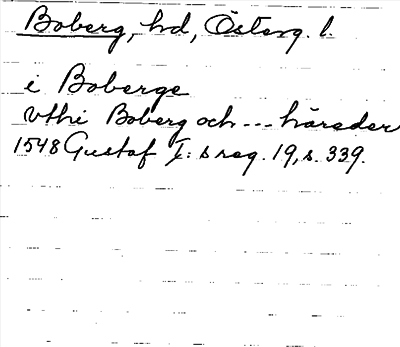 Boberg, hd, Österg. l.
i Boberge
vthi Boberg och --- härader
1548 Gustaf I:s reg. 19, s. 339.